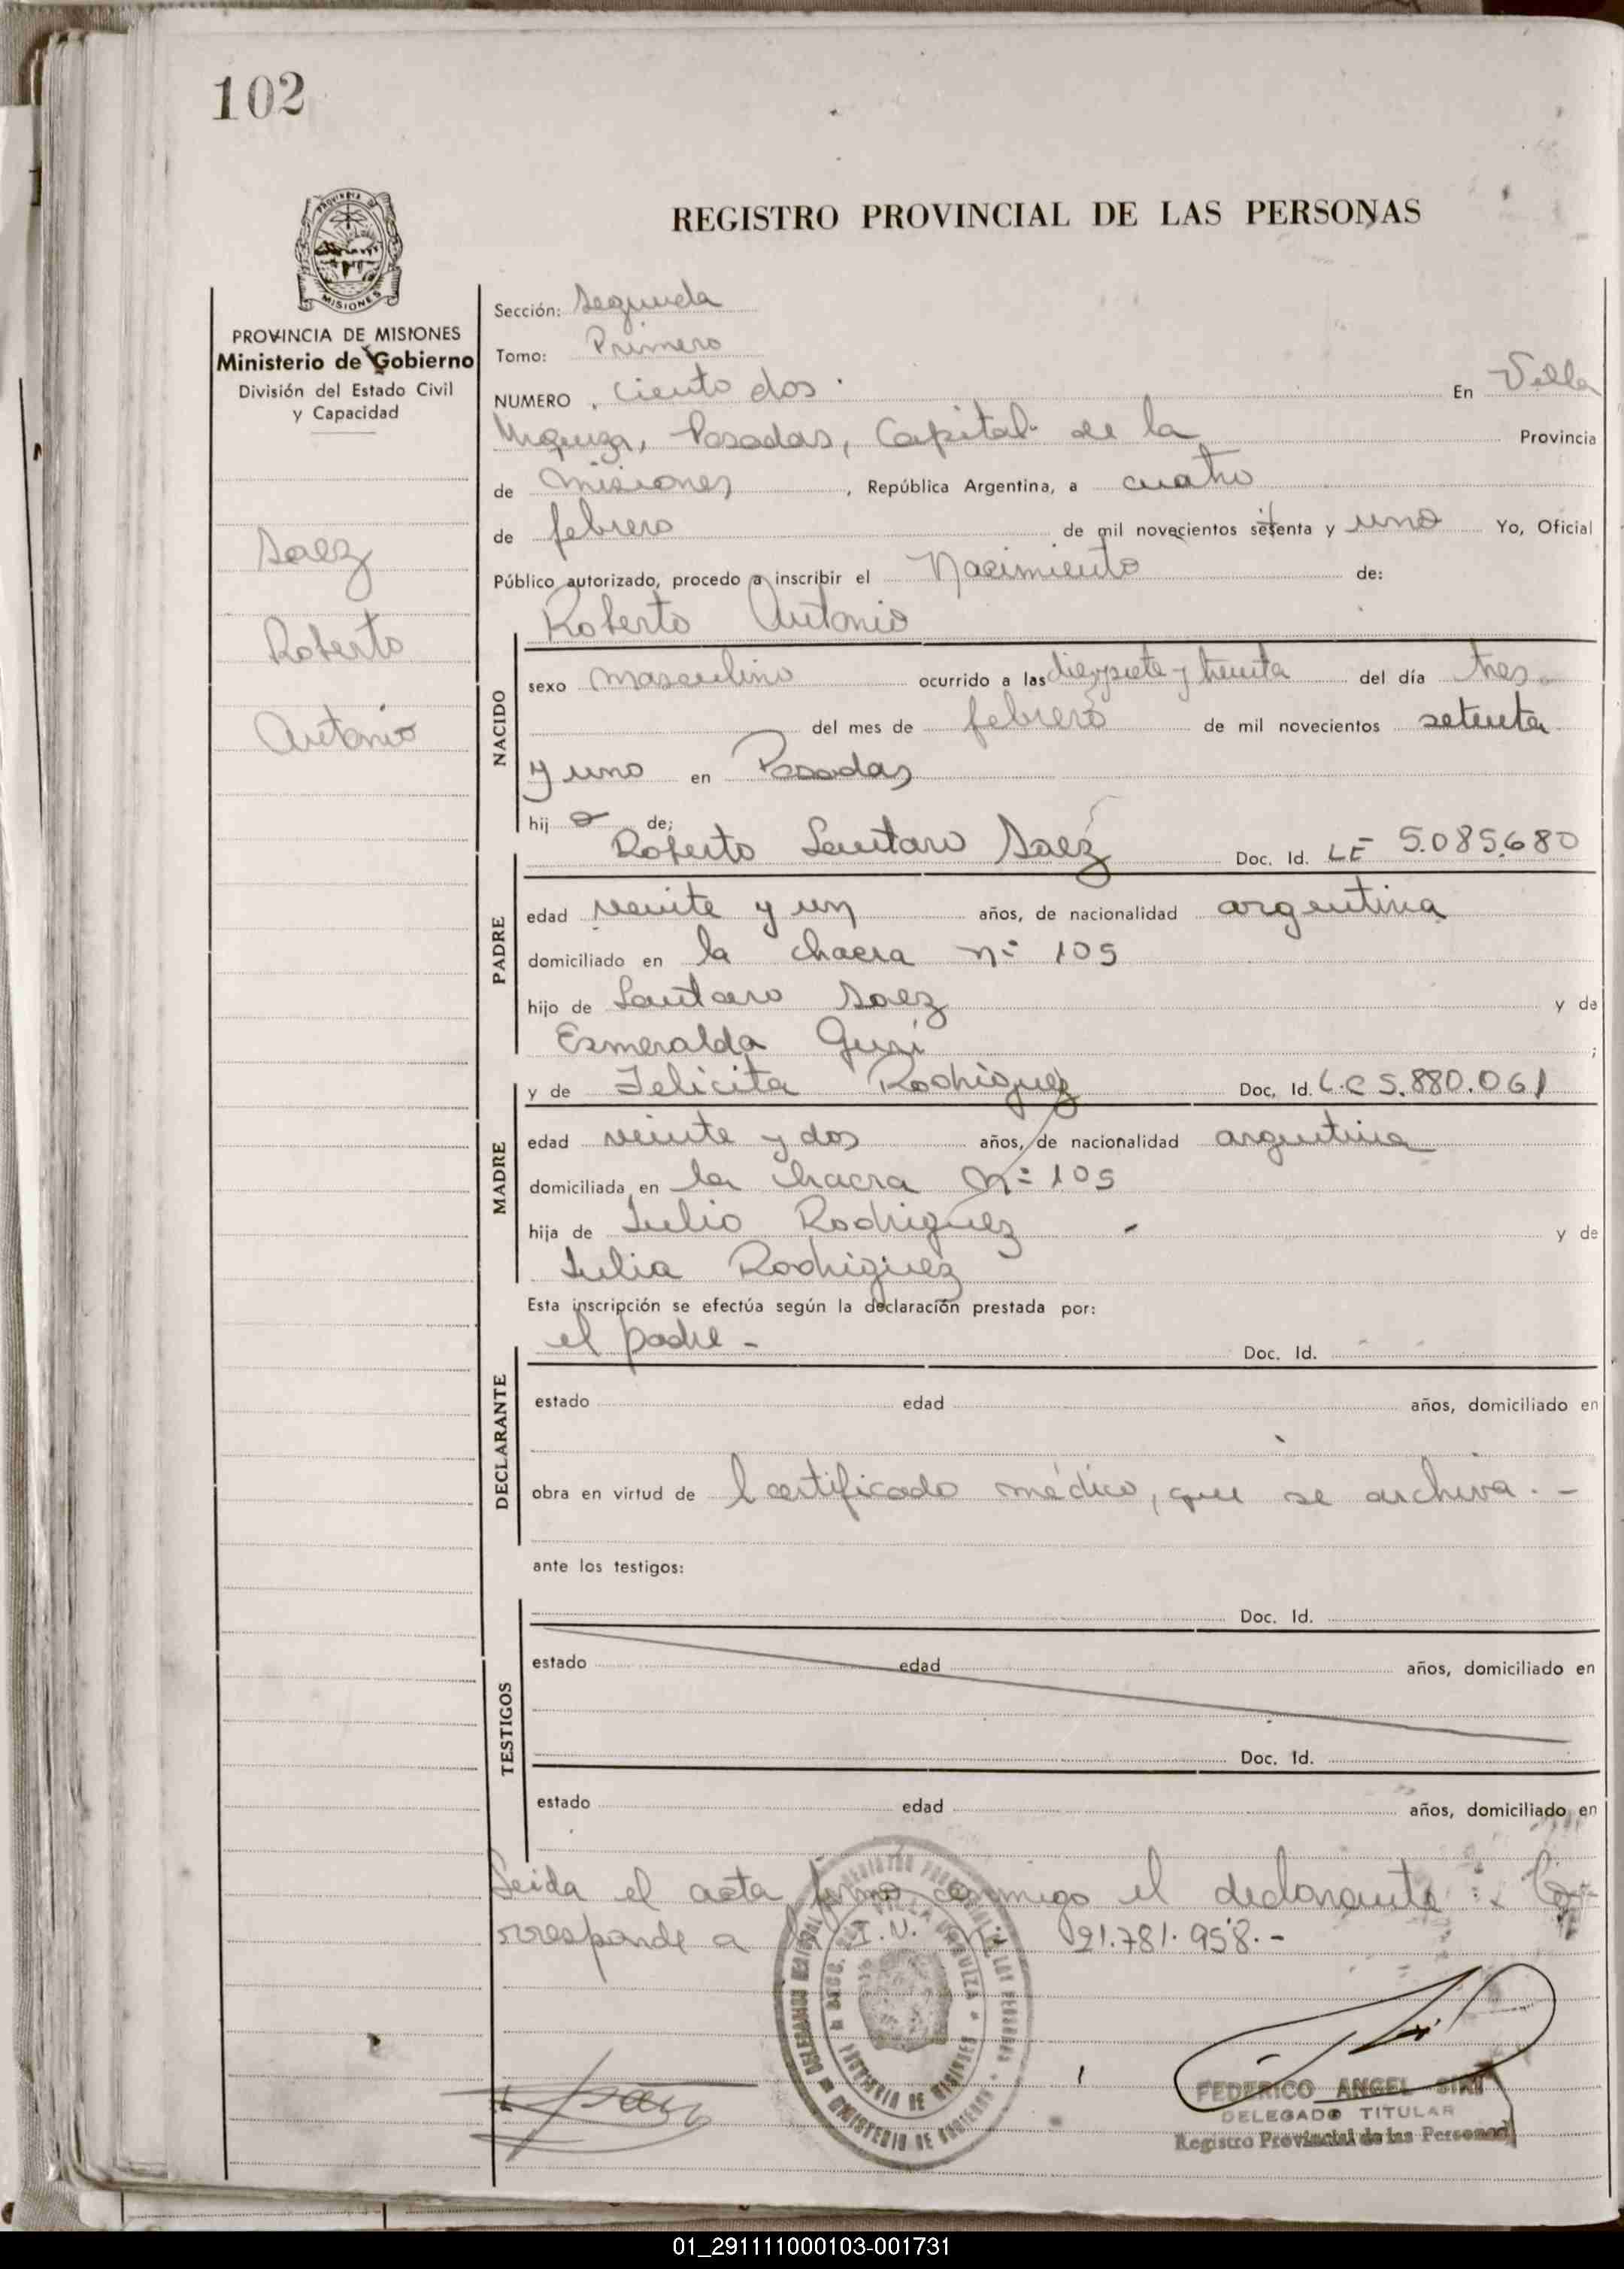 102
REGISTRO PROVINCIAL DE LAS PERSONAS
MISIONES
PROVINCIA DE MISIONES
Ministerio de Gobierno
División del Estado Civil
y Capacidad
Saez
Roberto
Antonio
Sección: Segunda
Tomo: Primero
NUMERO ciento dos En Villa
Urquiza, Posadas, Capital de la Provincia
de misiones, República Argentina, a cuatro
de febrero de mil novecientos setenta y uno Yo, Oficial
Público autorizado, procedo a inscribir el Nacimiento de:
Roberto Antonio
NACIDO
sexo masculino ocurrido a las diezysiete y treinta del día tres
del mes de febrero de mil novecientos setenta
y uno en Posadas
hijo de;
Roberto Lautaro Saez Doc. Id. LE 5.085.680
PADRE
edad veinte y un años, de nacionalidad argentina
domiciliado en la chacra nº 105
hijo de Lautaro Saez y de
Esmeralda ;
y de Felicita Rodriguez Doc. Id. L.C 5.880.061
MADRE
edad veinte y dos años, de nacionalidad argentina
domiciliada en la chacra Nº 105
hija de Julio Rodriguez y de
Julia Rodriguez
Esta inscripción se efectúa según la declaración prestada por:
el padre - Doc. Id.
DECLARANTE
estado edad años, domiciliado en
obra en virtud de l certificado médico, que se archiva. -
ante los testigos:
Doc. Id.
TESTIGOS
estado edad años, domiciliado en
Doc. Id.
estado edad años, domiciliado en
Leida el acta firma conmigo el declarante. Co-
rresponde a M.I.N. Nº 21.781.958.-
VILLA URQUIZA
PROVINCIA DE MISIONES
MINISTERIO DE GOBIERNO
FEDERICO ANGEL
DELEGADO TITULAR
Registro Provincial de las Personas
01_291111000103-001731